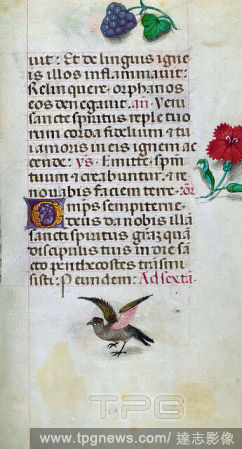 uit: Et de linguis igne
is illos inflammauit:
Relinquere orphanos
eos denegauit. an̄. Veni
sancte spiritus reple tuo
rum corda fidelium ⁊ tui
amoris in eis ignem ac
cende: vs̄. Emitte spm̄
tuum ⁊ creabuntur. ⁊ re
nouabis faciem terre. or̄
Omps sempiterne
deus da nobis illā
sancti spiritus grāz quā
discipulis tuis in die sā
cto penthecostes trāsmi
sisti: P eundem: Ad sexta.
TPG
www.tpgnews.com / 達志影像